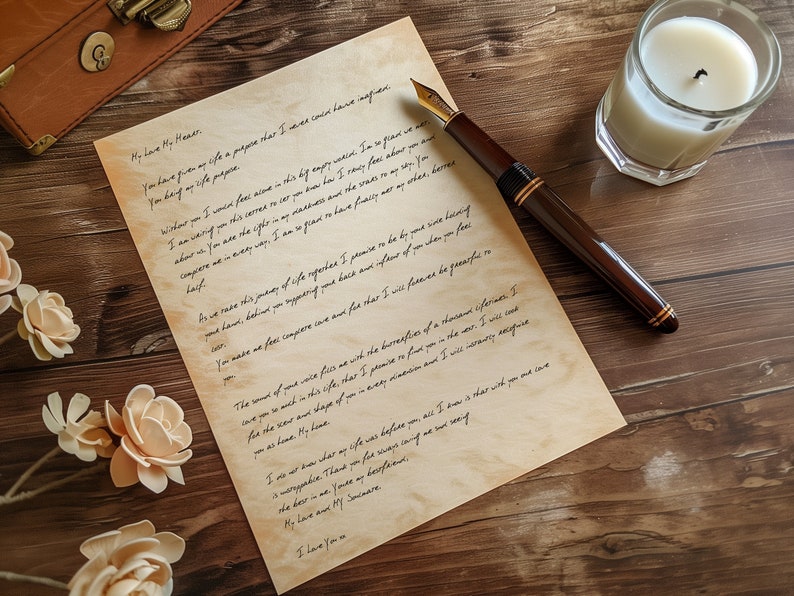 My Love My Heart.
You have given my life a purpose that I never could have imagined.
You bring my life purpose.
Without you I would feel alone in this big empty world. Im so glad we met.
I am writing you this letter to let you know how I truly feel about you and
about us. You are the light in my darkness and the stars to my sky. You
complete me in every way, I am so glad to have finally met my other, better
half.
As we take this journey of life together I promise to be by your side holding
your hand, behind you supporting your back and infront of you when you feel
lost.
You make me feel complete love and for that I will forever be greatful to
you.
The sound of your voice fills me with the butterflies of a thousand lifetimes. I
love you so much in this life, that I promise to find you in the next. I will look
for the scent and shape of you in every dimension and I will instantly recognise
you as home. My home.
I do not know what my life was before you, all I know is that with you our love
is unstoppable. Thank you for always loving me and seeing
the best in me. Youre my bestfriend,
My Love and MY Soulmate.
I Love You xx